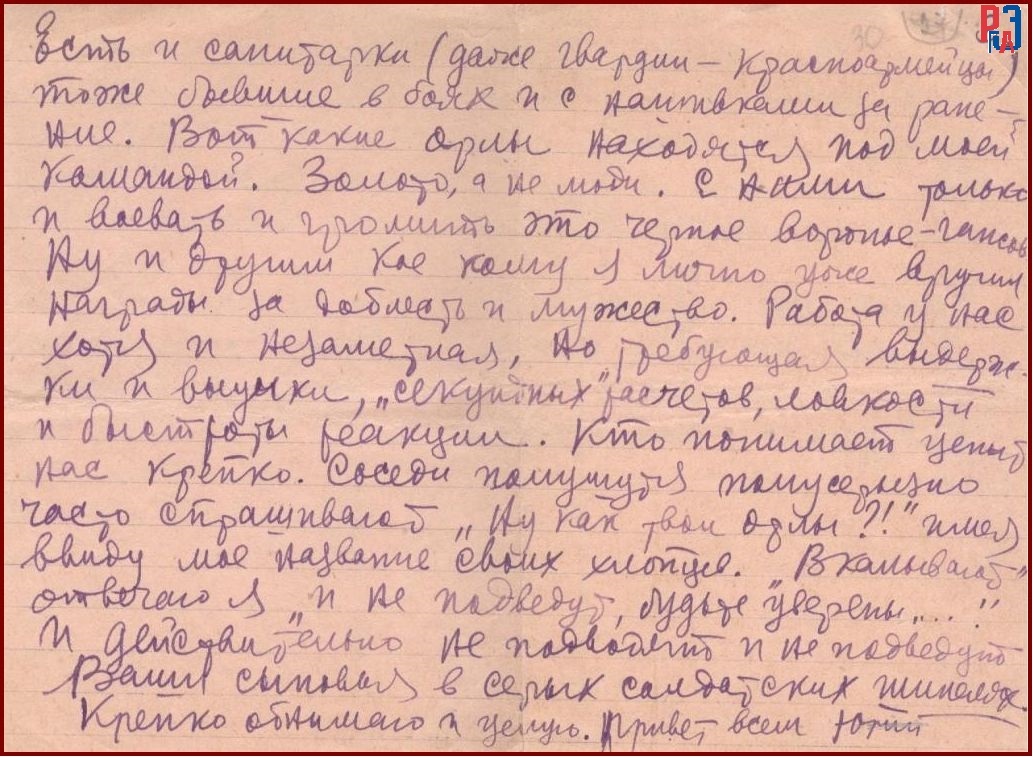 30 27
РГАЭ
Есть и санитарки (даже гвардии – красноармейцы)
тоже бывшие в боях и с нашивками за ране-
ние. Вот какие орлы находятся под моей
командой. Золото, а не люди. С ними только
и воевать и громить это черное воронье – гансов
Ну и другим кое кому я лично уже вручил
награды за доблесть и мужество. Работа у нас
хотя и незаметная, но требующая выдерж-
ки и выучки, „секундных" расчетов, ловкости
и быстроты реакции. Кто понимает ценит
нас крепко. Соседи полушутя полусерьезно
часто спрашивают „Ну как твои орлы?!" имея
ввиду мое название своих хлопцев. Вкалывают"
отвечаю я „и не подведут, будьте уверены„...!"
И действительно не подводят и не подведут
Ваши сыновья в серых солдатских шинелях.
Крепко обнимаю и целую. Привет всем